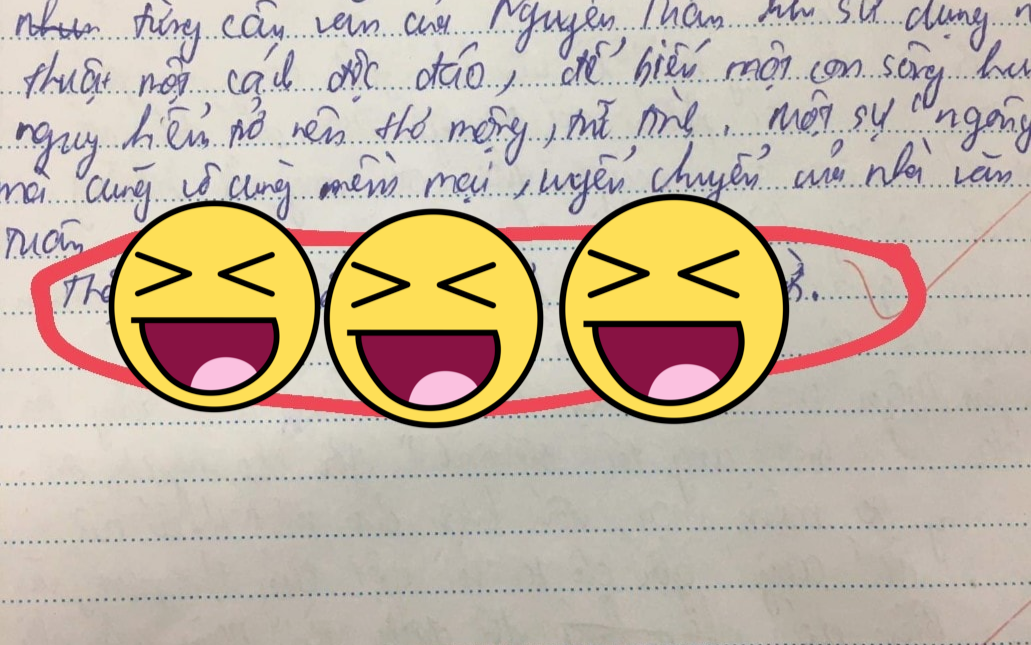 từng câu văn của Nguyễn Tuân khi sử dụng
thuật một cách độc đáo, để biến một con sông hu
nguy hiểm trở nên thơ mộng, trữ tình. Một sự "ngông
mà cũng vô cùng mềm mại, uyển chuyển của nhà văn
Tuân